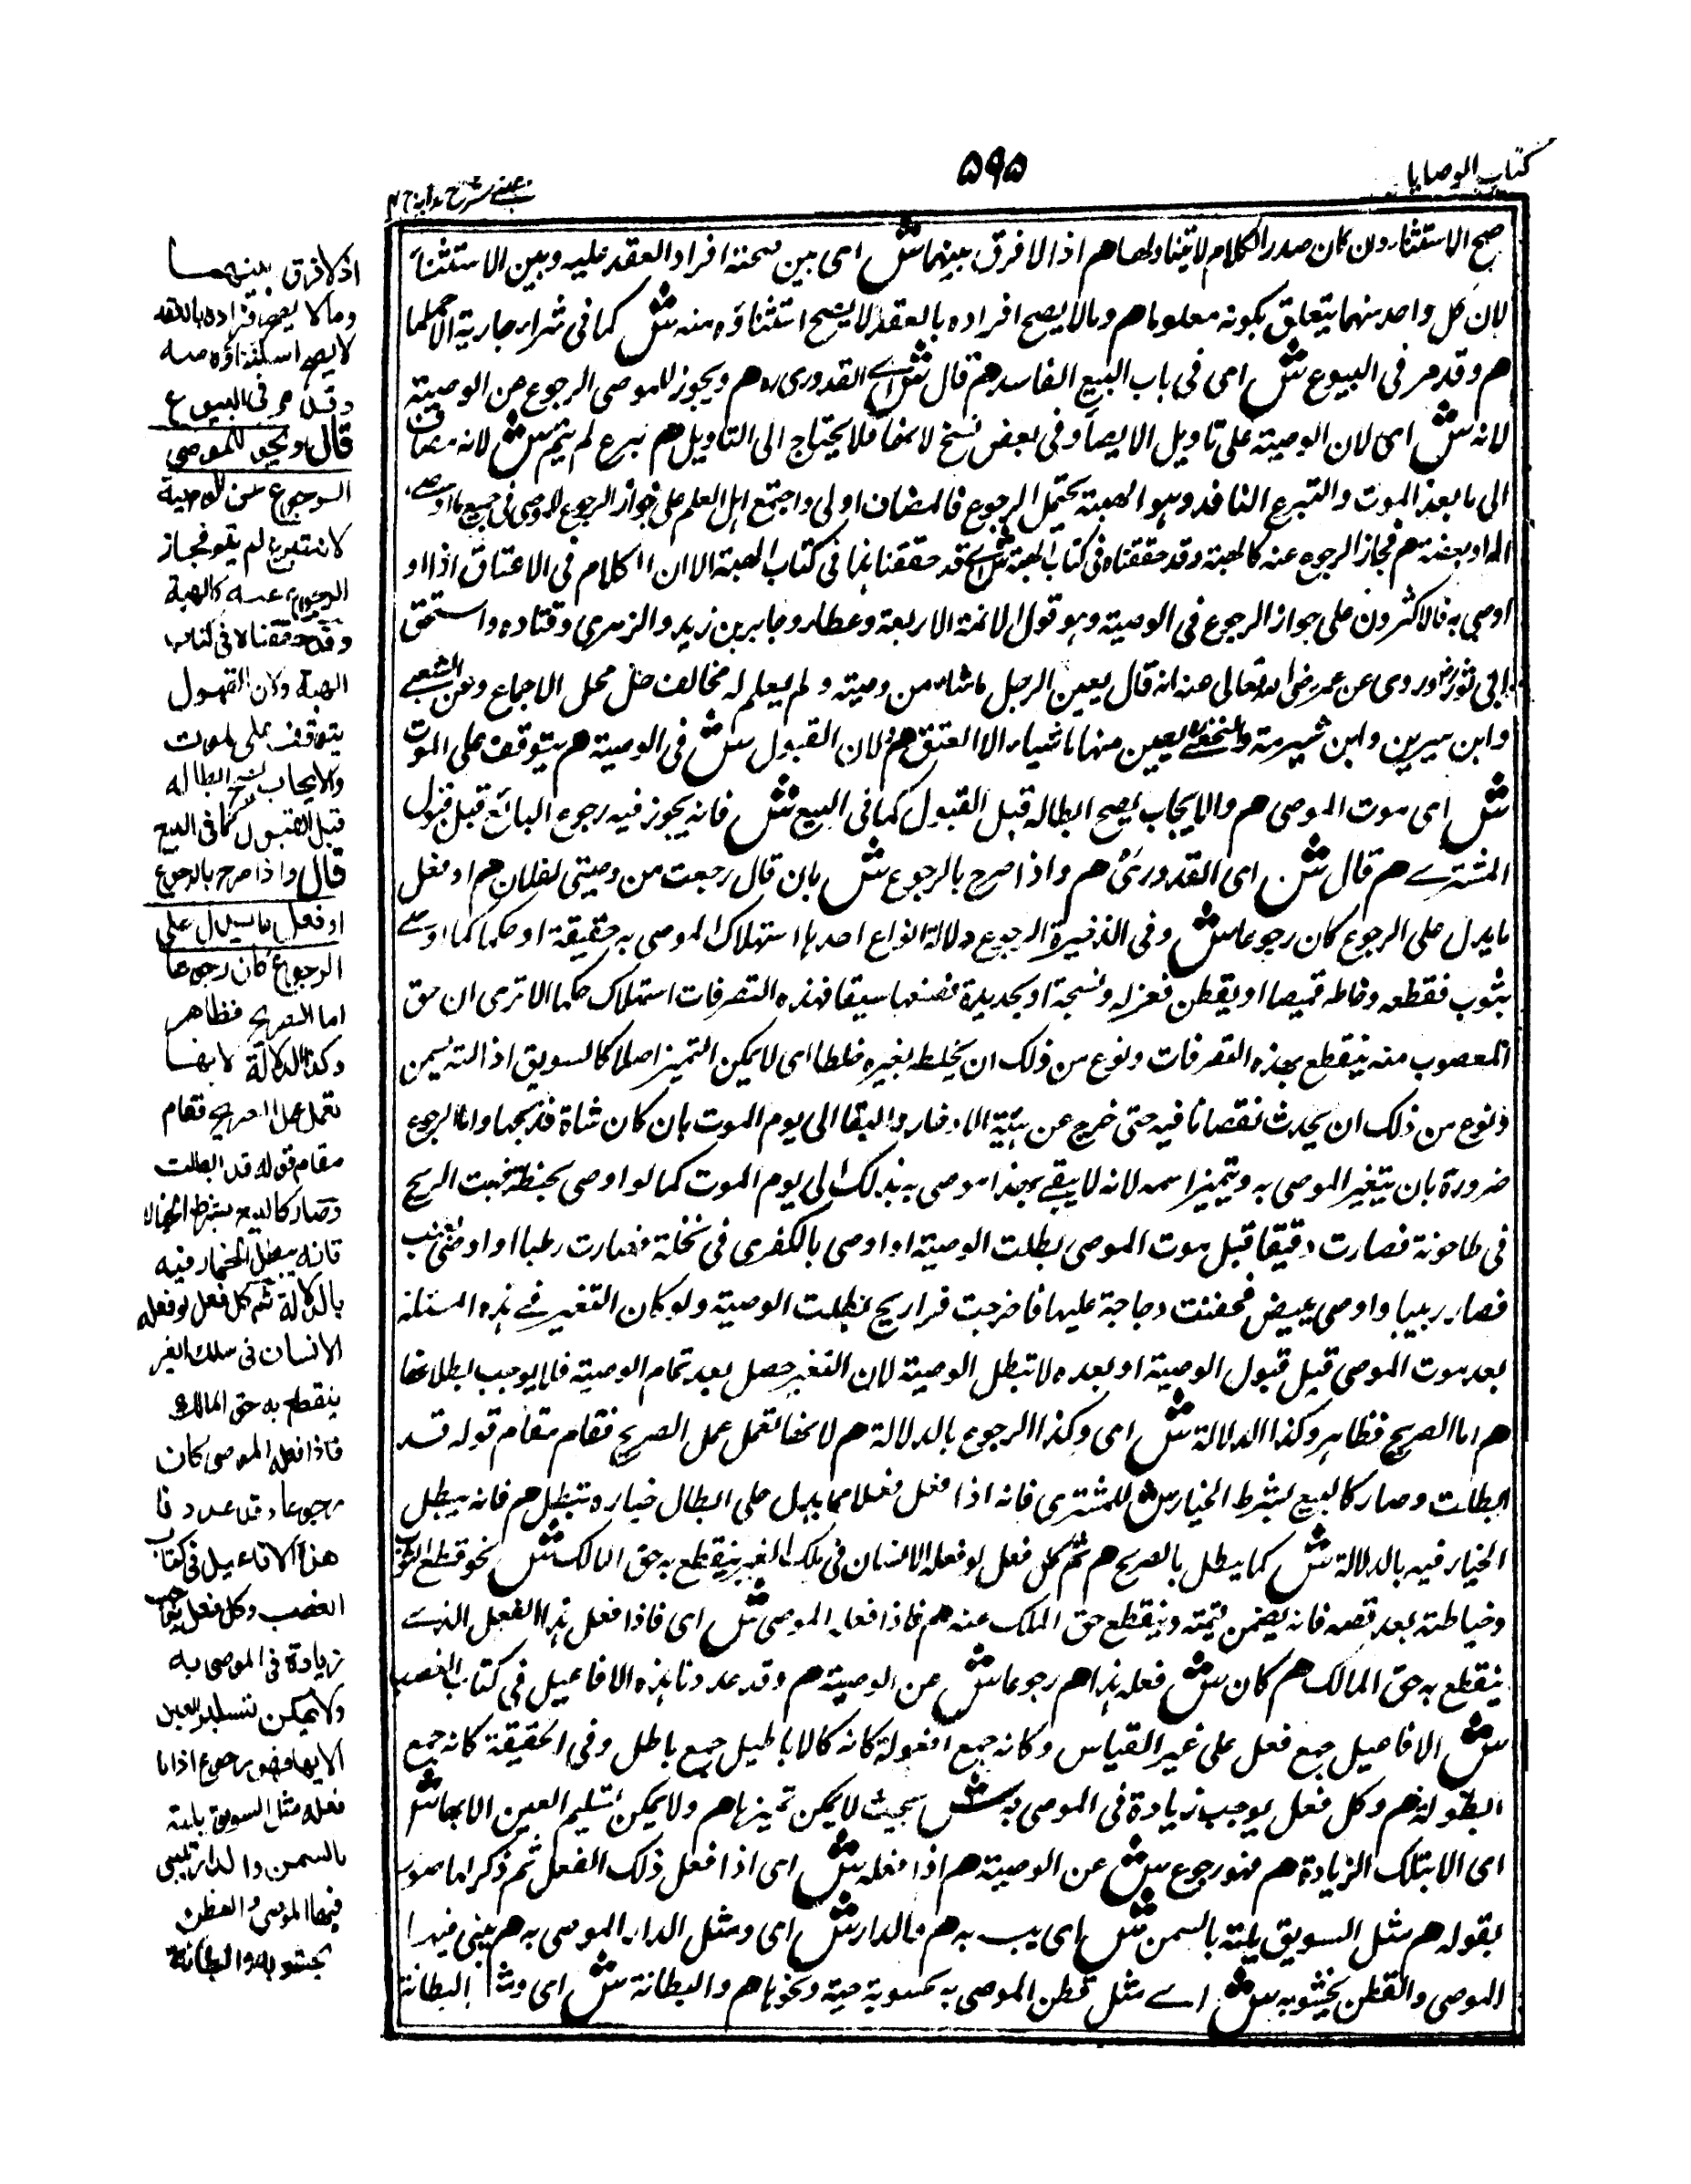 كتاب الوصايا
۵۹۵
عينى شرح هداية ج ۴
صح الاستثناء وان كان صدر الكلام لا يتناولها هم اذ لا فرق بينهما ش اى بين صحة افراد العقد عليه وبين الاستثناء
لان كل واحد منهما يتعلق بكونه معلوما هم وما لا يصح افراده بالعقد لا يصح استثناؤه منه ش كما فى شراء جارية الا حملها
هم وقد مر فى البيوع ش اى فى باب البيع الفاسد هم قال ش اى القدورى ره هم ويجوز للموصى الرجوع عن الوصية
لانه ش اى لان الوصية على تاويل الايصاء وفى بعض نسخ لانها فلا يحتاج الى التاويل هم تبرع لم يتم ش لانه مضاف
الى ما بعد الموت والتبرع النافذ وهو الهبة يحتمل الرجوع فالمضاف اولى واجتمع اهل العلم على جواز الرجوع للموصى فى جميع ما اوصى
له او بعضه هم فجاز الرجوع عنه كالهبة وقد حققناه فى كتاب الهبة ش اى قد حققنا هذا فى كتاب الهبة الا ان الكلام فى الاعتاق اذا او
اوصى به فالاكثرون على جواز الرجوع فى الوصية وهو قول الائمة الاربعة وعطاء وجابر بن زيد والزهرى وقتادة واسحق
ابى ثور وروى عن عمر رضى الله تعالى عنه انه قال يعين الرجل ما شاء من وصيته ولم يعلم له مخالف حل محل الاجماع وعن الشعبى
وابن سيرين وابن شبرمة والنخعى يعين منها ما شياء الا العتق هم ولان القبول ش فى الوصية هم يتوقف على الموت
ش اى موت الموصى هم والايجاب يصح ابطاله قبل القبول كما فى البيع ش فانه يجوز فيه رجوع البائع قبل قبول
المشترى هم قال ش اى القدورى هم واذا صرح بالرجوع ش بان قال رجعت من وصيتى لفلان هم او فعل
ما يدل على الرجوع كان رجوعا ش وفى الذخيرة الرجوع دلالة انواع احدها استهلاك الموصى به حقيقة او حكما كما اوصى
بثوب فقطعه وخاطه قميصا او بقطن فغزله ونسجه او بحديدة فصنعها سيفا فهذه التصرفات استهلاك حكما الا ترى ان حق
المغصوب منه ينقطع بهذه التصرفات ونوع من ذلك ان يخلطه بغيره خلطا اى لا يمكن التميز اصلا كالسويق اذا لته بسمن
ونوع من ذلك ان يحدث نقصانا فيه حتى خرج عن هيئة الادخار والبقا الى يوم الموت بان كان شاة فذبحها واما الرجوع
ضرورة بان يتغير الموصى به ويتميز اسمه لانه لا يبقى بهذا موصى به بذلك الى يوم الموت كما لو اوصى بحنطة فهبت الريح
فى طاحونة فصارت دقيقا قبل موت الموصى بطلت الوصية او اوصى بالكفرى فى نخلة فصارت رطبا او اوصى بعنب
فصار زبيبا واوصى ببيض فحضنت دجاجة عليها فاخرجت فراريج بطلت الوصية ولو كان التغير فى هذه المسئلة
بعد موت الموصى قبل قبول الوصية او بعده لا تبطل الوصية لان التغير حصل بعد تمام الوصية فلا يوجب بطلانها
هم اما الصريح فظاهر وكذا الدلالة ش اى وكذا الرجوع بالدلالة هم لانها تعمل عمل الصريح فقام مقام قوله قد
ابطلت وصار كالبيع بشرط الخيار ش للمشترى فانه اذا فعل فعلا مما يدل على ابطال خياره تبطل هم فانه يبطل
الخيار فيه بالدلالة ش كما يبطل بالصريح هم ثم كل فعل لو فعله الانسان فى ملك الغير ينقطع به حق المالك ش نحو قطع الثوب
وخياطته بعد قصه فانه يضمن قيمته وينقطع حق الملك عنه هم فاذا فعله الموصى ش اى فاذا فعل هذا الفعل الذى
ينقطع به حق المالك هم كان ش فعله هذا هم رجوعا ش من الوصية هم وقد عددنا هذه الافاعيل فى كتاب الغصب
ش الافاعيل جمع فعل على غير القياس وكانه جمع افعولة كانه كالاباطيل جمع باطل وفى الحقيقة كانه جمع
ابطولة هم وكل فعل يوجب زيادة فى الموصى به ش بحيث لا يمكن تميزها هم ولا يمكن تسليم العين الا بها ش
اى الا بتلك الزيادة هم فهو رجوع ش عن الوصية هم اذا فعله ش اى اذا فعل ذلك الفعل ثم ذكر اما صور
بقوله هم مثل السويق يلته بالسمن ش اى يب به هم والدار ش اى ومثل الدار الموصى به هم يبنى فيها
الموصى والقطن يحشو به ش اى مثل قطن الموصى به حسوبة جبة ونحوها هم والبطانة ش اى ومثل البطانة
اذ لا فرق بينهما
وما لا يصح افراده بالعقد
لا يصح استثناؤه منه
وقد مر فى البيوع
قال ويجوز للموصى
الرجوع عن الوصية
لانه تبرع لم يتم فجاز
الرجوع عنه كالهبة
وقد حققناه فى كتاب
الهبة ولان القبول
يتوقف على الموت
والايجاب يصح ابطاله
قبل القبول كما فى البيع
قال واذا صرح بالرجوع
او فعل ما يدل على
الرجوع كان رجوعا
اما الصريح فظاهر
وكذا الدلالة لانها
تعمل عمل الصريح فقام
مقام قوله قد ابطلت
وصار كالبيع بشرط الخيار
فانه يبطل الخيار فيه
بالدلالة ثم كل فعل لو فعله
الانسان فى ملك الغير
ينقطع به حق المالك
فاذا فعله الموصى كان
رجوعا وقد عددنا
هذه الافاعيل فى كتاب
الغصب وكل فعل يوجب
زيادة فى الموصى به
ولا يمكن تسليم العين
الا بها فهو رجوع اذا
فعله مثل السويق يلته
بالسمن والدار يبنى
فيها الموصى والقطن
يحشو به والبطانة